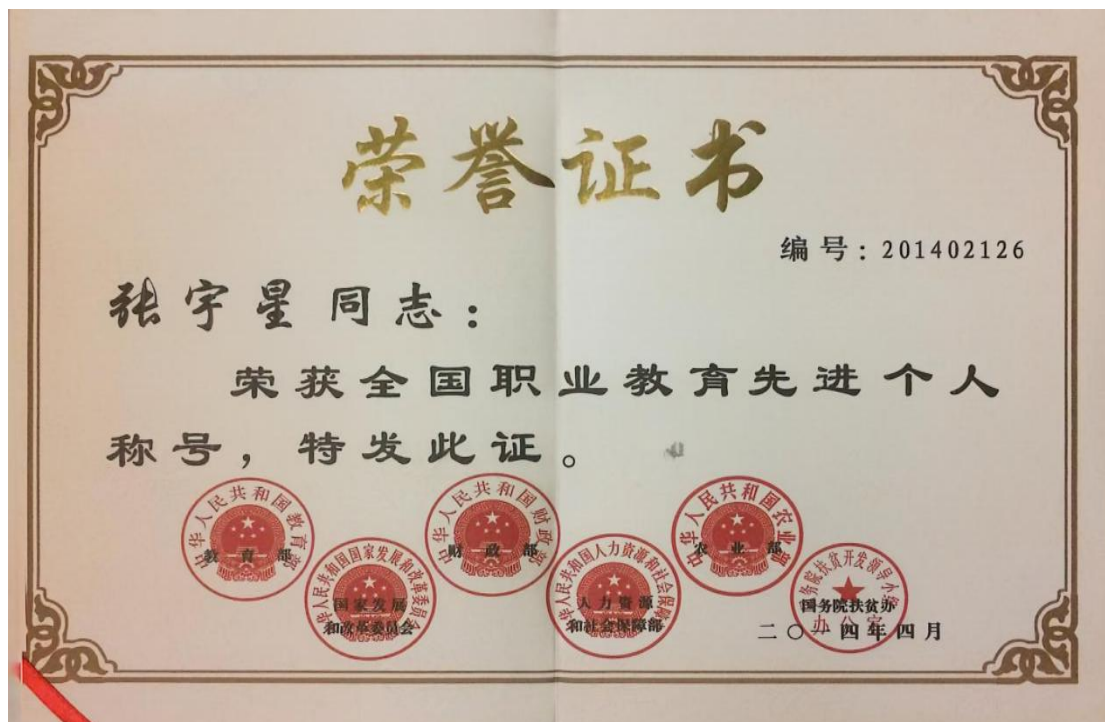 荣誉证书
编号:201402126
张宇星同志:
荣获全国职业教育先进个人
称号,特发此证。
中华人民共和国教育部
教育部
中华人民共和国国家发展和改革委员会
国家发展
和改革委员会
中华人民共和国财政部
财政部
中华人民共和国人力资源和社会保障部
人力资源
和社会保障部
中华人民共和国农业部
农业部
国务院扶贫开发领导小组
办公室
国务院扶贫办
二〇一四年四月